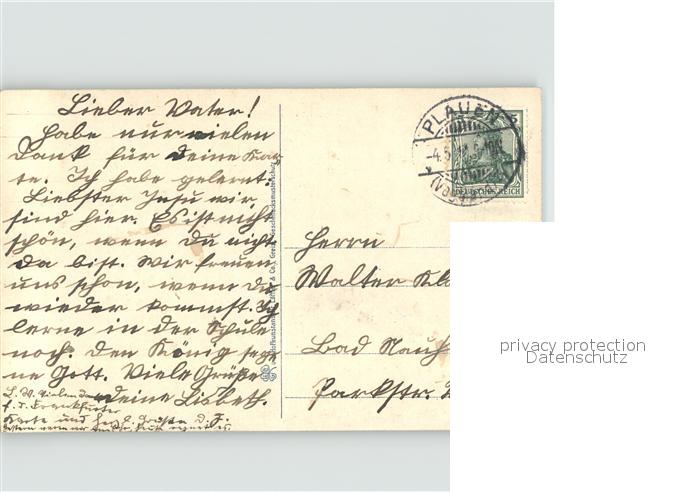 Lieber Vater!
Habe nur vielen
Dank für deine Kar
te. Ich habe gelernt:
Liebster Jesu wir
sind hier. Es ist nicht
schön, wenn du nicht
da bist. Wir freuen
uns schon, wenn du
wieder kommst. Ich
lerne in der Schule
noch. Den König segne
ne Gott. Viele Grüße
deine Lisbeth.
L. W. Vielen Dank
f. d. Frankfurter
Karte und
PLAUEN
-4.5.
(VOGTL.)
5
DEUTSCHES REICH
Herrn
Walter
Bad Nauh
Parkstr.
privacy protection
Datenschutz